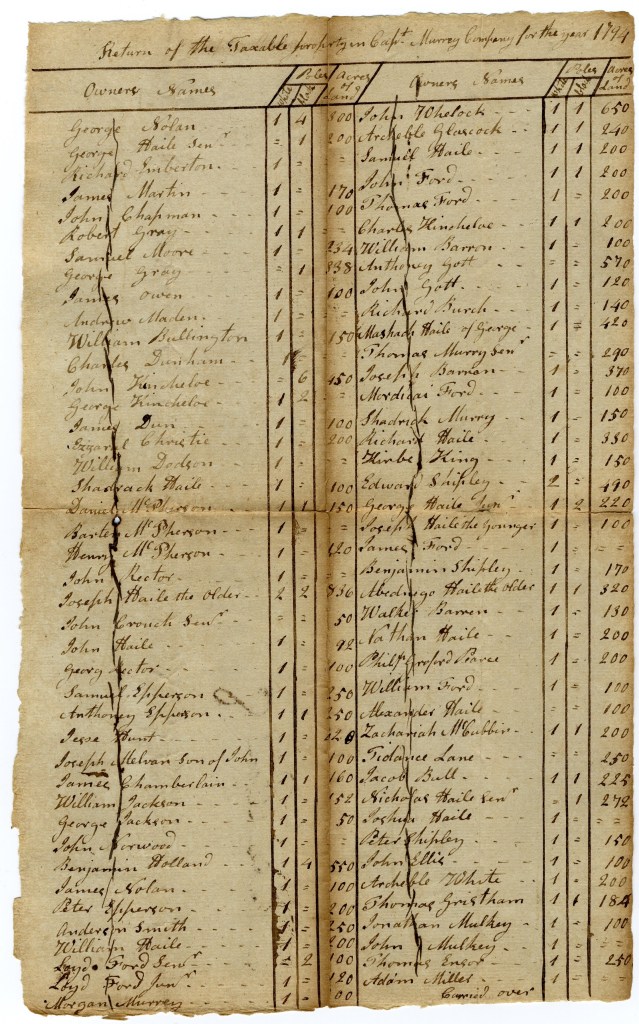 Return of the Taxable property in Capt. Murrey Company for the year 1794
Owners Names White Poles Black Acres of Land
George Nolan 1 4 300
George Haile Senr = 1 200
Richard Emberton 1 = =
James Martin 1 = 170
John Chapman 1 = 100
Robert Gray 1 1 =
Samuel Moore 1 = 234
George Gray = 1 338
James Owen 1 = 100
Andrew Maden 1 = =
William Bullington 1 = 150
Charles Dunham 1 = =
John Kincheloe = 6 450
George Kincheloe 1 2 =
James Dun 1 = 100
Christie 1 = 200
William Dodson 1 = =
Shadrack Haile 1 = 100
Daniel McPherson 1 1 150
Bartley McPherson 1 = =
Henry McPherson 1 = 120
John Rector 1 = =
Joseph Haile the Older 2 2 836
John Crouch Senr = = 50
John Haile 1 = 92
Georg Rector 1 = 100
Samuel Epperson 1 = 250
Anthoney Epperson 1 1 250
Jesse Hunt 1 =
Joseph Melvan Son of John 1 = 100
James Chamberlain 1 1 160
William Jackson 1 = 152
George Jackson 1 = 50
John Norwood 1 = =
Benjamin Holland 1 4 550
James Nolan 1 = 100
Peter Epperson 1 = 200
Anderson Smith 1 = 250
William Haile 1 = 200
Loyd Ford Senr = 2 100
Loyd Ford Junr 1 = 120
Morgan Murrey 1 =
Owners Names White Poles Black Acres of Land
John Whelock 1 1 650
Archeble Glascock 1 1 240
Samuel Haile 1 1 200
John Ford 1 1 200
Thomas Ford
Charles Kincheloe 1 1 200
William Barron 1 = 100
Anthoney Gott = = 570
John Gott 1 = 120
Richard Burch 1 = 140
Mashach Haile of George 1 = 420
Thomas Murry Senr = = 290
Joseph Barran 1 = 370
Mordicai Ford 1 = 100
Shadrick Murry 1 = 150
Richard Haile 1 = 350
Kirbe King 1 = 150
Edward Shipley 2 = 490
George Haile Junr 1 2 220
Joseph Haile the Younger 1 = 100
James Ford 1 = =
Benjamin Shipley 1 = 170
Abednego Haile the older 1 1 320
Walker Barren 1 = 130
Nathan Haile 1 = 200
Pearce 1 = 200
William Ford 1 = 100
Alexander Haile = = 100
Zachariah McCubbin 1 1 200
Tidance Lane = = 250
Jacob Bull 1 1 225
Nicholas Haile Senr = 1 272
Joshua Haile 1 = =
Peter Shipley 1 = 150
John Ellis 1 = 100
Archeble White 1 = 200
Thomas Gristham 1 1 184
Jonathan Mulkey 1 = 100
John Mulkey 1 = =
Thomas Ensor 1 = 250
Adam Miller 1 = =
Carried over